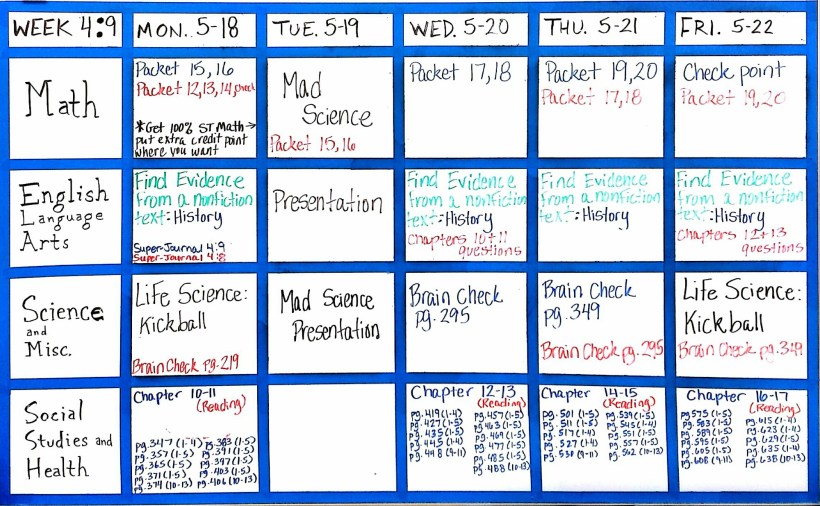 WEEK 4:9
MON. 5-18
TUE. 5-19
WED. 5-20
THU. 5-21
FRI. 5-22
Math
Packet 15,16
Packet 12,13,14,
*Get 100% ST Math→
put extra credit point
where you want
Mad
Science
Packet 15,16
Packet 17,18
Packet 19,20
Packet 17,18
Check point
Packet 19,20
English
Language
Arts
Find Evidence
from a nonfiction
text:History
Super-Journal 4:9
Super-Journal 4:8
Presentation
Find Evidence
from a nonfiction
text:History
Chapters 10+11
questions
Find Evidence
from a nonfiction
text:History
Find Evidence
from a nonfiction
text:History
Chapters 12+13
questions
Science
and
Misc.
Life Science:
Kickball
Brain Check pg.219
Mad Science
Presentation
Brain Check
pg.295
Brain Check
pg.349
Brain Check pg.295
Life Science:
Kickball
Brain Check pg.349
Social
Studies and
Health
Chapter 10-11
(Reading)
pg.347 (1-4) pg.383 (1-5)
pg.357 (1-5) pg.391 (1-5)
pg.365 (1-5) pg.397 (1-5)
pg.371 (1-5) pg.403 (1-5)
pg.374 (10-13) pg.406 (10-13)
Chapter 12-13
(Reading)
pg.419 (1-4) pg.457 (1-5)
pg.427 (1-5) pg.463 (1-5)
pg.435 (1-5) pg.469 (1-5)
pg.445 (1-4) pg.477 (1-5)
pg.448 (9-11) pg.485 (1-5)
pg.488 (10-13)
Chapter 14-15
(Reading)
pg.501 (1-5) pg.539 (1-5)
pg.511 (1-5) pg.545 (1-4)
pg.517 (1-4) pg.551 (1-5)
pg.527 (1-4) pg.557 (1-5)
pg.530 (9-11) pg.562 (10-13)
Chapter 16-17
(Reading)
pg.575 (1-5) pg.615 (1-4)
pg.583 (1-5) pg.623 (1-4)
pg.589 (1-5) pg.629 (1-5)
pg.595 (1-5) pg.635 (1-4)
pg.605 (1-5) pg.638 (10-13)
pg.608 (9-11)